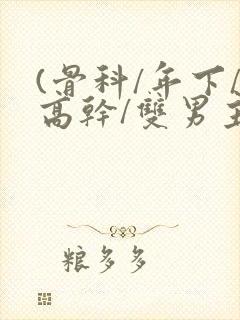 (骨科/年下/
高幹/雙男主
粮多多